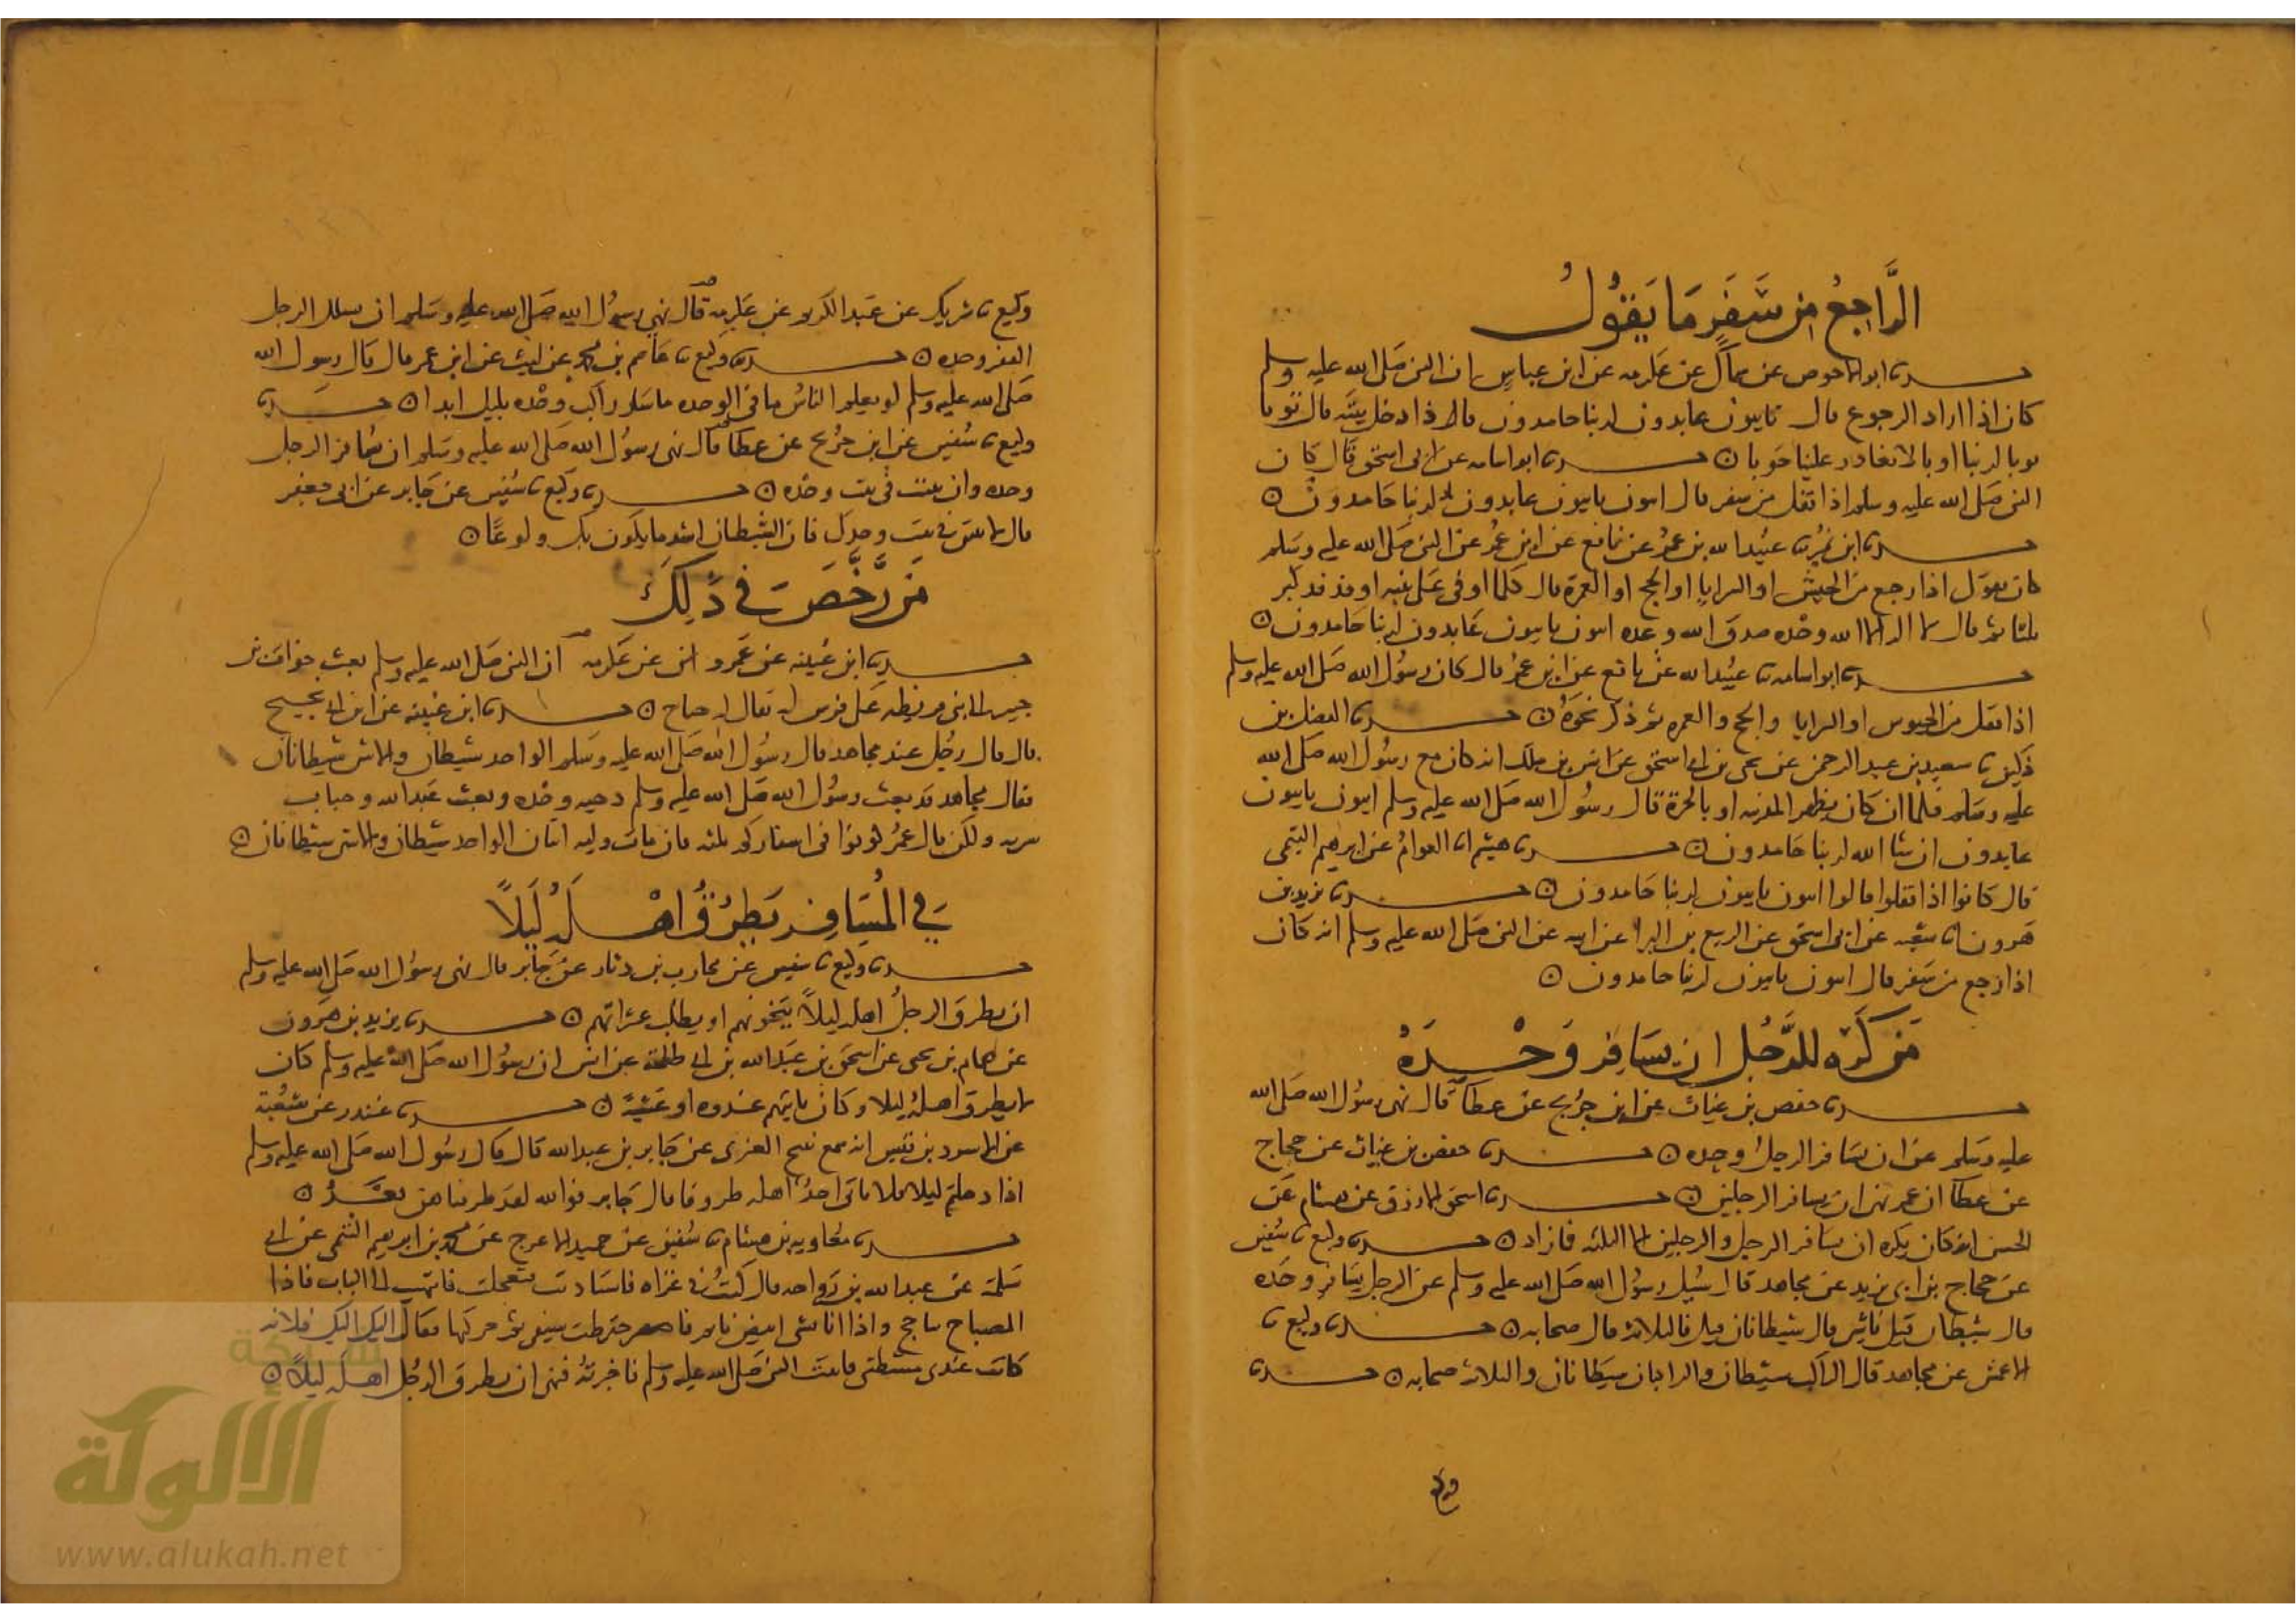 الرَّاجِعُ مِن سَفَرٍ مَا يَقُولُ
حدثنا ابو الاحوص عن سماك عن عكرمه عن ابن عباس ان النبى صَلى الله عليه وسلم
كان اذا اراد الرجوع قال تايبون عابدون لربنا حامدون فاذا دخل بيته قال توبا
توبا لربنا اوبا لا يغادر علينا حَوبا ن حدثنا ابو اسامه عن ابى اسحق قال كان
النبى صَلى الله عليه وسلم اذا قفل من سفر قال ايبون تايبون عابدون لربنا حَامدون ن
حدثنا ابن نُمير ثنا عبيد الله بن عمر عن نافع عن ابن عُمر عن النبى صَلى الله عليه وسَلم
كان يقول اذا رجع من الجيش او السرايا او الحج او العمرة قال كلما اوفى على ثنيه او فدفد كبر
ثلثا ثم قال لا اله الا الله وحْده صدق الله وعده ايبون تايبون عَابدون لربنا حَامدون ن
حدثنا ابو اسامه ثنا عبُيد الله عن نافع عن ابن عمُر قال كان رسُول الله صَلى الله عليه وسلم
اذا قفل من الجيوش او السرايا والحج والعمره ثم ذكر نحوَهُ ن حدثنا الفضل بن
دكين ثنا سعيد بن عبد الرحمن عن يحيى بن ابى اسحق عن انس بن ملك انه كان مع رسُول الله صَلى الله
عليه وسَلم فلما ان كان بظهر المدينه او بالحرة قال رسُول الله صَلى الله عليه وسلم ايبون تايبون
عابدون ان شا الله لربنا حَامدون ن حدثنا هشيم انا العوامُ عن ابرهيم التيمى
قال كانوا اذا قفلوا قالوا ايبون تايبون لربنا حَامدون ن حدثنا يزيد بن
هَرون انا شعبه عن ابى اسحق عن الربيع بن البرا عن ابيه عن النبى صَلى الله عليه وسلم انه كان
اذا رجع من سَفر قال ايبون تايبون لربنا حامدون ن
مَن كَرِه للرَّجُل ان يسَافِر وَحْدَهُ
حدثنا حفص بن غياث عن ابن جرُيج عن عطا قال نهى رسُول الله صَلى الله
عليه وسَلم عن ان يسَافر الرجلُ وحده ن حدثنا حفص بن غياث عن حجاج
عن عطا ان عمر نهى ان يسافر الرجلين ن حدثنا اسحق الازرق عن هشام عَن
الحسن انه كان يكره ان يسَافر الرجل والرجلين الا الثلثه فازاد ن حدثنا وكيع ثنا سُفين
عن حجاج بن ابى يزيد عن مجاهد قال سُيل رسُول الله صَلى الله عليه وسلم عن الرجل يسَافر وحَده
قال شيطان قيل فاثنين قال شيطانان قيل فالثلاثه قال صحابه ن حدثنا وكيع ثنا
الاعمش عن مجاهد قال الراكب شيطان والراكبان شيطانان والثلاثه صحابه ن حدثنا
وكيع
وكيع ثنا شريك عن عَبد الكريم عن عكرمه قال نهى رسُول الله صَلى الله عليه وسَلم ان يسلك الرجل
القفر وحده ن حدثنا وكيع ثنا عَاصم بن محمد عن ابيه عن ابن عمر قال قال رسول الله
صَلى الله عليه وسلم لو يعلم الناسُ ما فى الوحده ما سَار راكب وحْده بليل ابدا ن حدثنا
وكيع ثنا سُفين عن ابن جُريج عن عطا قال نهى رسُول الله صَلى الله عليه وسَلم ان يسُافر الرجل
وحده وان يبيت فى بيت وحْده ن حدثنا وكيع ثنا سُفين عن جَابر عن ابى جعفر
قال لا تبيتن فى بيت وحدك فان الشيطان اشد ما يكون بك ولوعًا ن
مَن رَخَّصَ فى ذَلِكَ
حدثنا ابن عُيينه عن عَمرو عن عكرمه ان النبى صَلى الله عليه وسلم بعث خوات بن
جبير الى بنى قريظه على فرس له يقال له جناح ن حدثنا ابن عُيينه عن ابن ابى نجيح
قال قال رجُل عند مجاهد قال رسُول الله صَلى الله عليه وسَلم الواحد شيطان والاثنين شيطانان
فقال مجاهد قد بعث رسُول الله صَلى الله عليه وسلم دحيه وحْده وبعث عَبد الله وخباب
سريه ولكن قال عمُر كونوا فى اسفاركم ثلثه فان مات وليه اثنان الواحد شيطان والاثنين شيطانان ن
فى المُسَافِر يَطرُقُ اهْلَهُ لَيلاً
حدثنا وكيع ثنا سفين عن محارب بن دثار عن جَابر قال نهى رسُول الله صَلى الله عليه وسلم
ان يطرق الرجلُ اهله ليلاً يتخونهم او يطلب عثراتهم ن حدثنا يزيد بن هَرون
عن همام بن يحيى عن اسحق بن عبَد الله بن ابى طلحة عن انس ان رسُول الله صَلى الله عليه وسلم كان
لا يطرق اهلهُ ليلا وكان ياتيهم غدوه او عَشيةً ن حدثنا غندر عن شعُبة
عن الاسود بن قيس انه سمع نبيح العنزى عن جَابر بن عبد الله قال قال رسُول الله صَلى الله عليه وسلم
اذا دخلتم ليلا فلا ياتى احدُكم اهله طروقا قال جَابر فوالله لقد طرقناهن بعَدُ ن
حدثنا معُاويه بن هشام ثنا سُفين عن حميد الاعرج عن محمد بن ابرهيم التيمى عن ابى
سَلمة عن عبد الله بن رَواحه قال كنتُ فى غزاه فاستاذنت فتعجلت فانتهيت الى الباب فاذا
المصباح يتاجج واذا انا بشى ابيض نايم فاخترطت سيفى ثم حركتها فقالت اليك اليك فلانه
كانت عندى مشطتنى فاتيت النبى صَلى الله عليه وسلم فاخبرتهُ فنهى ان يطرق الرجُل اهله ليلاً ن
شبكة
الألوكة
www.alukah.net